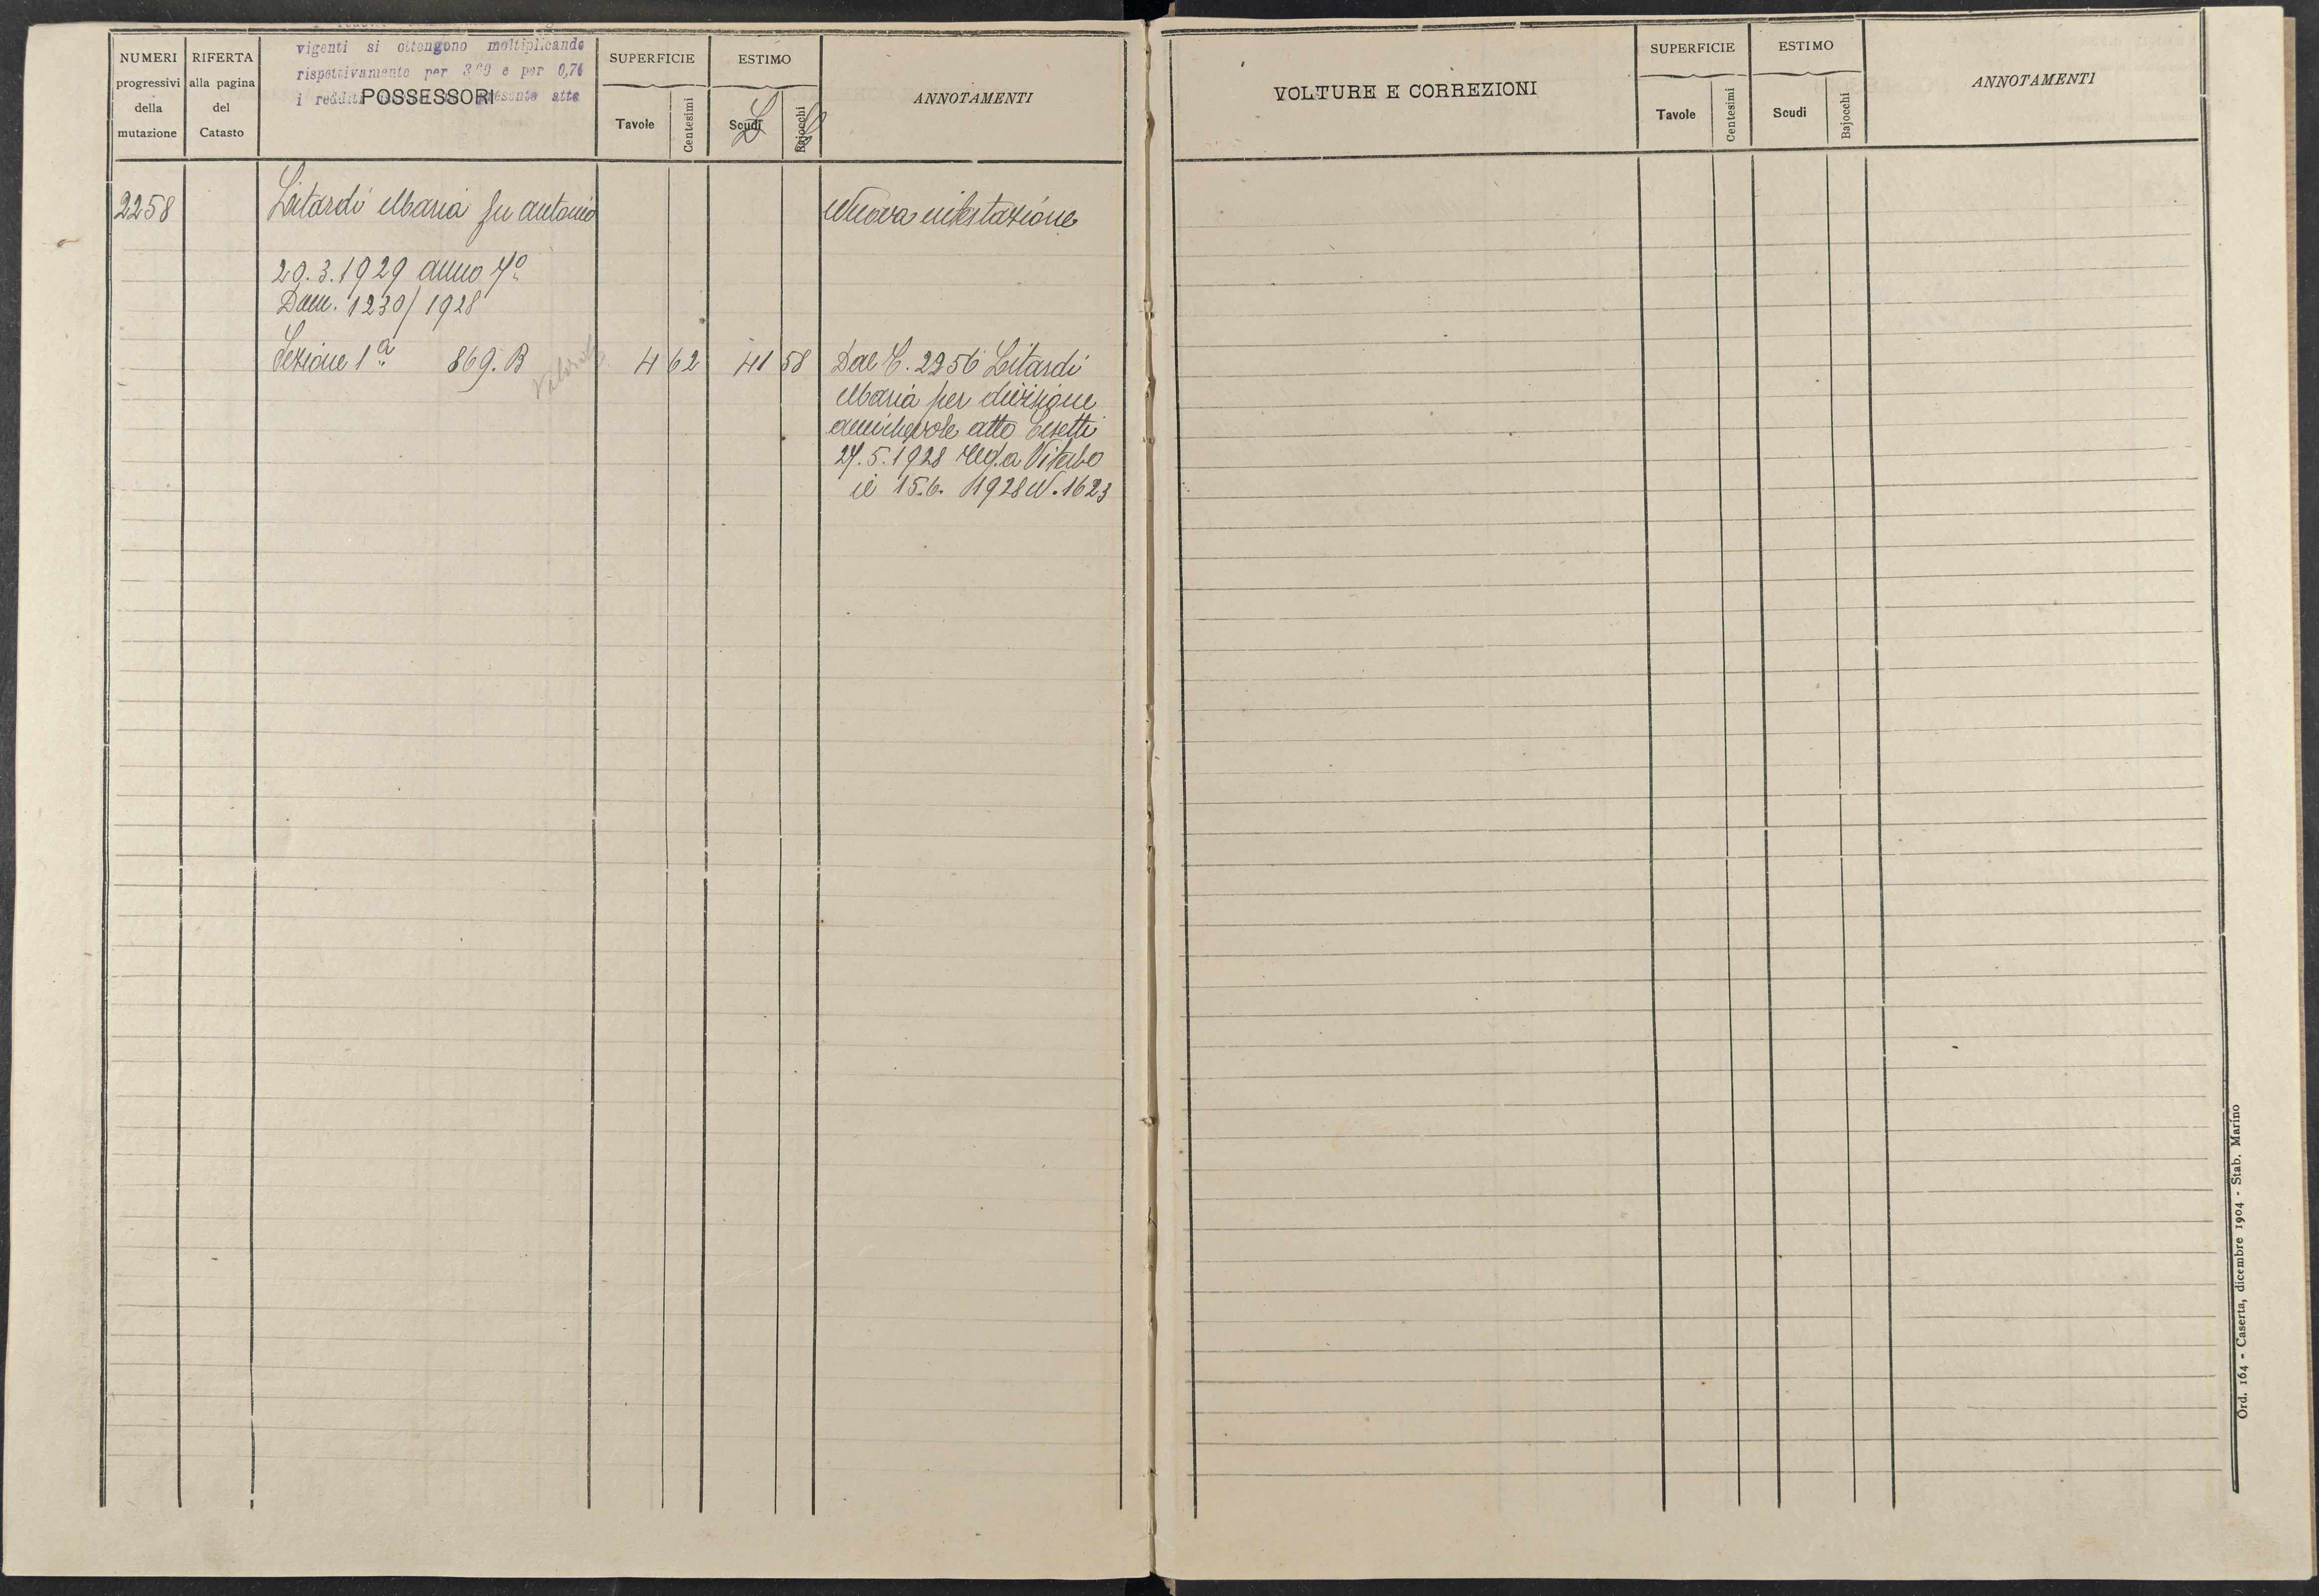 NUMERI
progressivi
della
mutazione
RIFERTA
alla pagina
del
Catasto
vigenti si ottengono moltiplicando
rispettivamente per e per 0,76
i redditi presente atto
POSSESSORI
SUPERFICIE
Tavole
Centesimi
ESTIMO
Scudi
Bajocchi
ANNOTAMENTI
2258
Litardi Maria fu Antonio
Nuova intestazione
20.3.1929 anno 7º
Dom. 1230/1928
Sezione 1ª 869.B
4 62 41 58
Dal C. 2256 Litardi
Maria per divisione
amichevole atto
27.5.1928 reg. a Viterbo
il 15.6.1928 N. 1623
VOLTURE E CORREZIONI
SUPERFICIE
Tavole
Centesimi
ESTIMO
Scudi
Bajocchi
ANNOTAMENTI
Ord. 164 - Caserta, dicembre 1904 - Stab. Marino